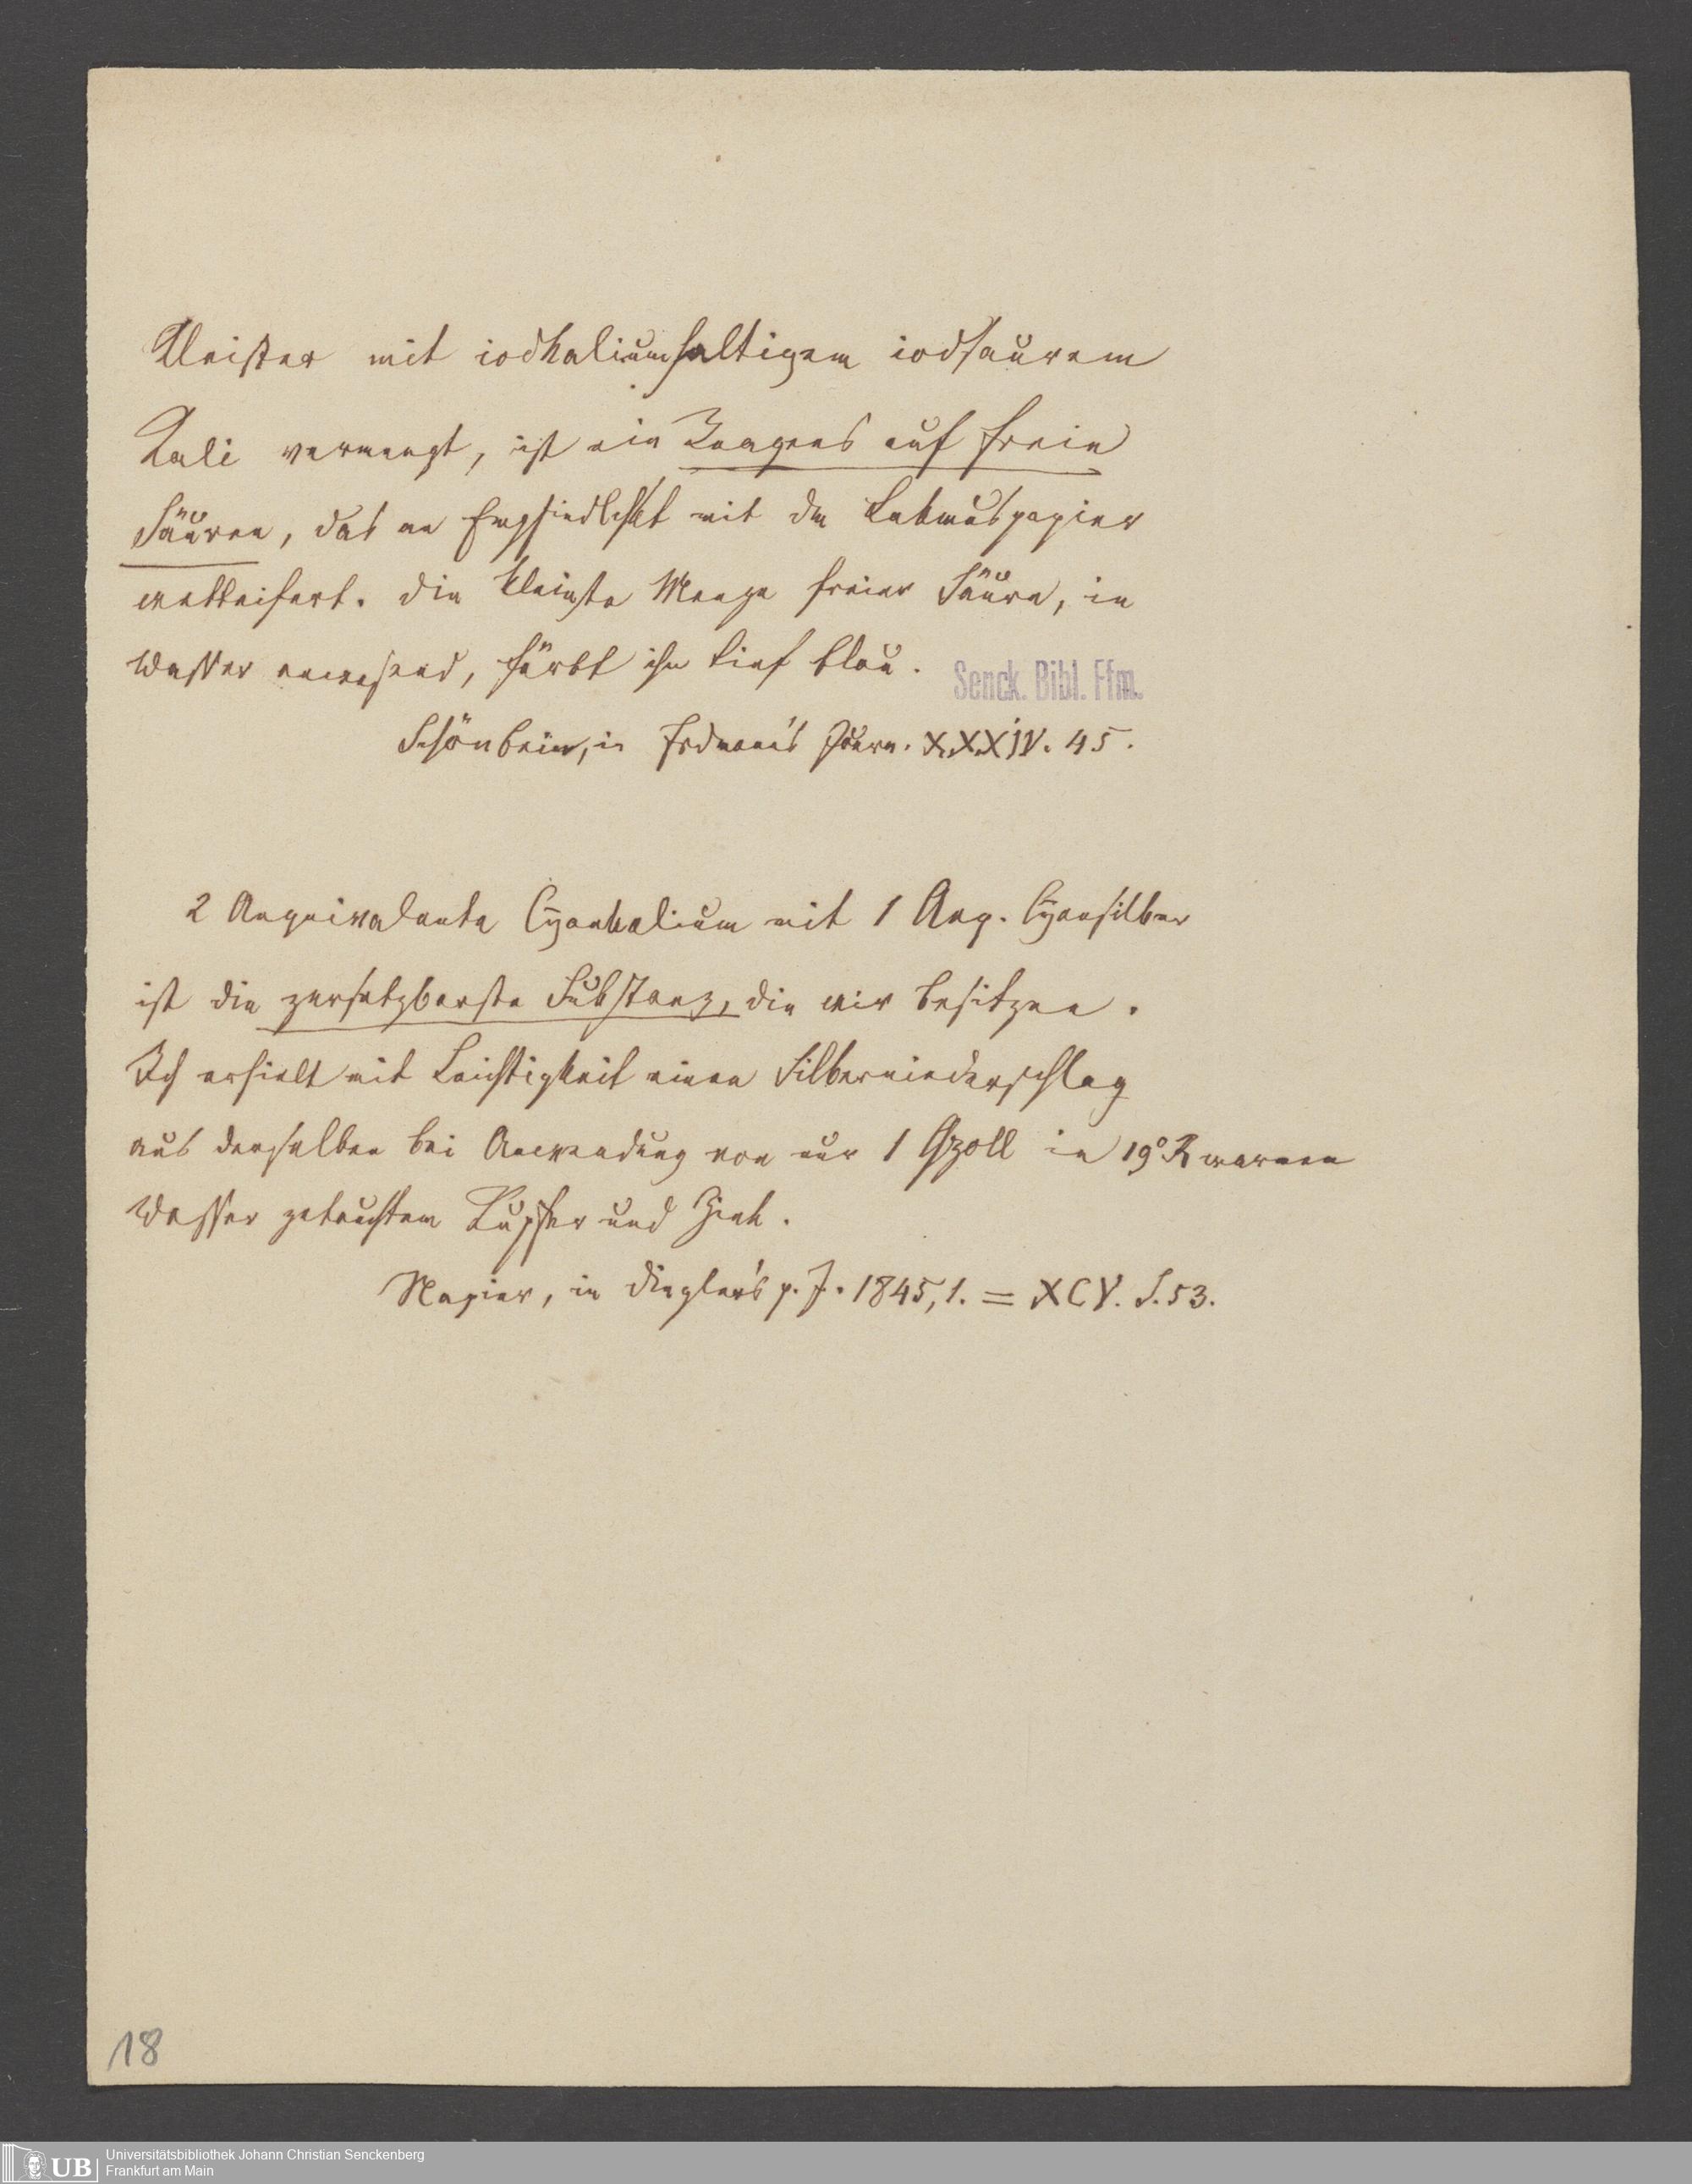 Kleister mit iodkaliumhaltigem iodsaurem
Kali vermengt, ist ein Reagens auf freie
Säuren, das an Empfindlichkt mit dem Lakmuspapier
wetteifert. Die kleinste Menge freier Säure, in
Wasser anwesend, färbt ihn tief blau.
Senck. Bibl. Ffm.
Schönbein, in Erdman's Journ. XXXIV. 45.
2 Aequivalente Cyankalium mit 1 Aeq. Cyansilber
ist die zersetzbarste Substanz, die wir besitzen.
Ich erhielt mit Leichtigkeit einen Silberniederschlag
aus derselben bei Anwendung von nur 1 □zoll in 19° R warmen
Wasser getauchtem Kupfer und Zink.
Napier, in Dingler's p. J. 1845, 1. = XCV. S. 53.
18
UB
Universitätsbibliothek Johann Christian Senckenberg
Frankfurt am Main